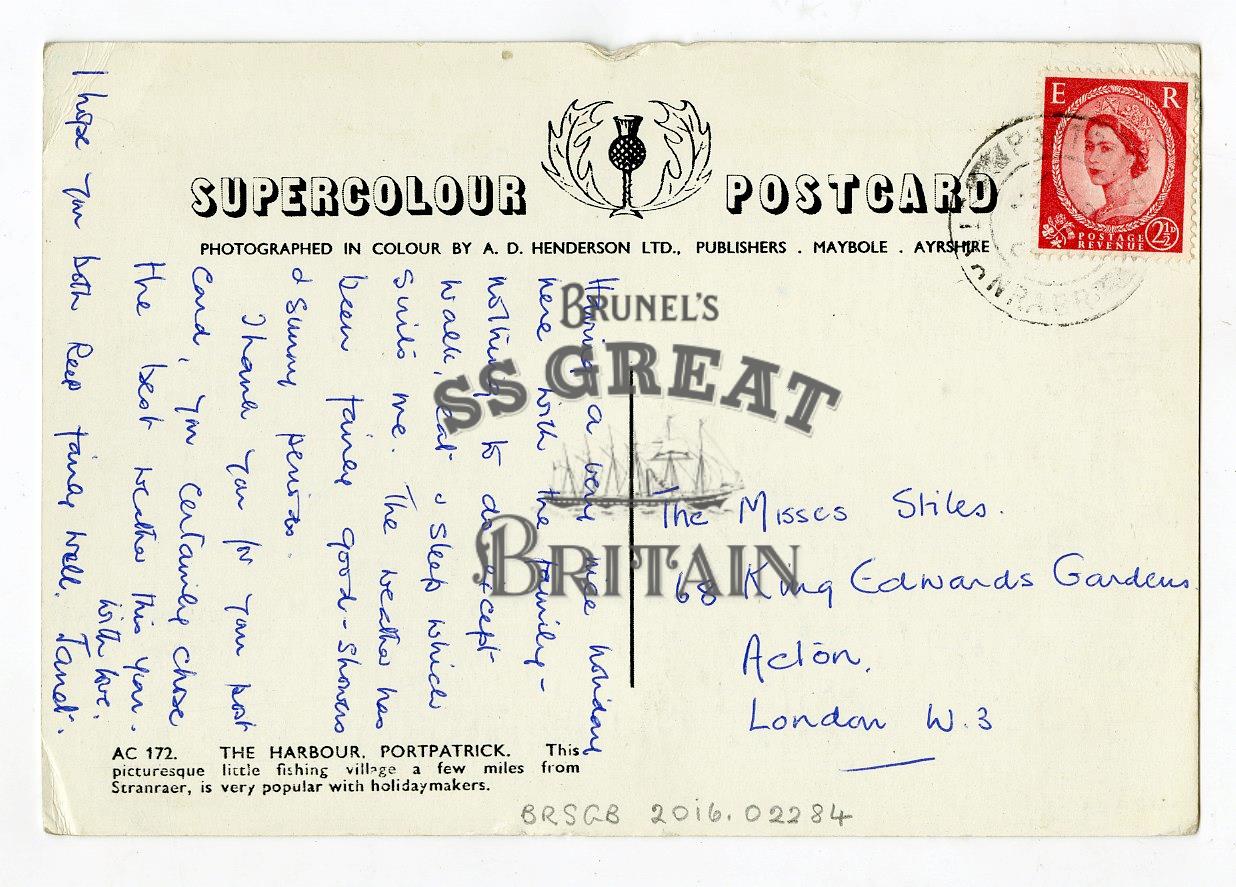 SUPERCOLOUR POSTCARD
PHOTOGRAPHED IN COLOUR BY A. D. HENDERSON LTD., PUBLISHERS . MAYBOLE . AYRSHIRE
E R
POSTAGE
REVENUE
2½D
Having a very nice holiday
here with the family -
nothing to do except
walk, eat & sleep which
suits me. The weather has
been fairly good - showers
& sunny periods.
Thank you for your post
card, you certainly chose
the best weather this year.
With love.
I hope you both keep fairly well. Janet.
The Misses Stiles.
68 King Edwards Gardens
Acton,
London W.3
AC 172. THE HARBOUR, PORTPATRICK. This
picturesque little fishing village a few miles from
Stranraer, is very popular with holidaymakers.
BRSGB 2016.02284
BRUNEL'S
SS GREAT
BRITAIN